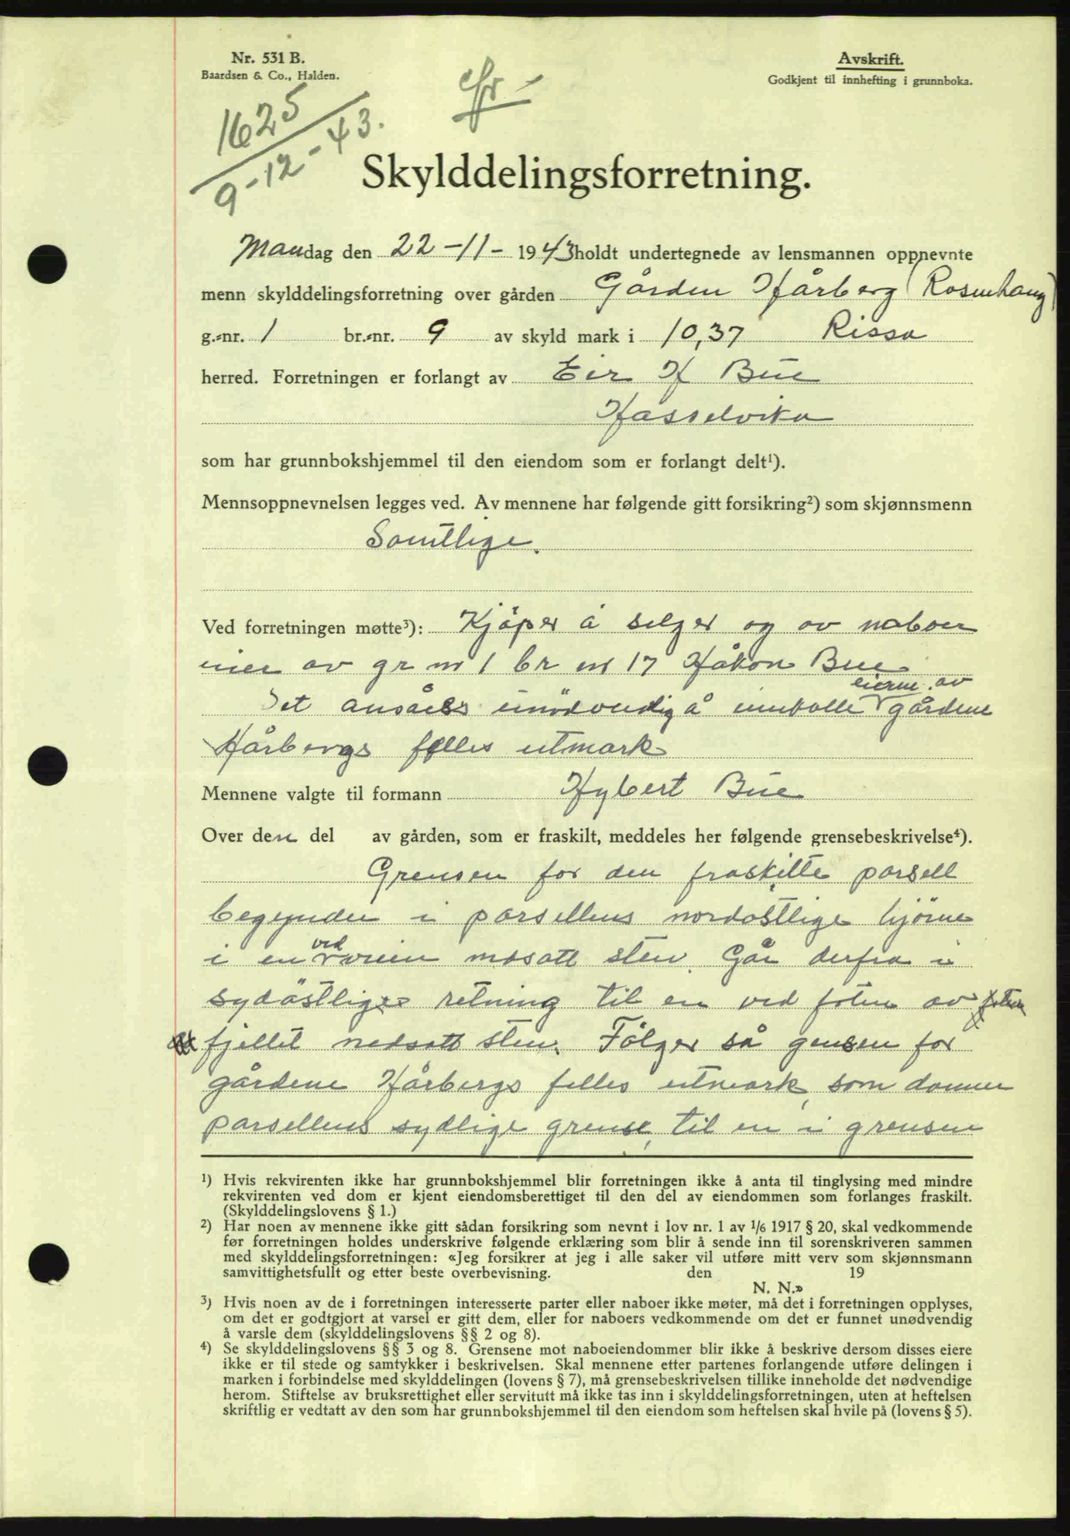 Nr. 531 B.
Baardsen & Co., Halden.
Avskrift.
Godkjent til innhefting i grunnboka.
1625
9-12-43.
Skylddelingsforretning.
Mandag den 22-11- 1943 holdt undertegnede av lensmannen oppnevnte
menn skylddelingsforretning over gården Gården Hårberg (Rosenhaug)
g.-nr. 1 br.-nr. 9 av skyld mark i 10,37 Rissa
herred. Forretningen er forlangt av Eir H Bue
Hasselvika
som har grunnbokshjemmel til den eiendom som er forlangt delt¹).
Mennsoppnevnelsen legges ved. Av mennene har følgende gitt forsikring²) som skjønnsmenn
Samtlige.
Ved forretningen møtte³): Kjøper å selger og av naboer
eier av gr nr 1 br nr 17 Håkon Bue
Det ansåes unødvendig å innkalle eierne av gårdene
Hårbergs felles utmark
Mennene valgte til formann Hybert Bue
Over den del av gården, som er fraskilt, meddeles her følgende grensebeskrivelse⁴).
Grensen for den fraskilte parsell
begynder i parsellens nordøstlige hjørne
i en ved veien nedsatt sten. Går derfra i
sydøstlige retning til en ved foten av
fjellet nedsatt sten. Følger så gensen for
gårdene Hårbergs felles utmark, som danner
parsellens sydlige grense, til en i grensen
¹) Hvis rekvirenten ikke har grunnbokshjemmel blir forretningen ikke å anta til tinglysing med mindre
rekvirenten ved dom er kjent eiendomsberettiget til den del av eiendommen som forlanges fraskilt.
(Skylddelingslovens § 1.)
²) Har noen av mennene ikke gitt sådan forsikring som nevnt i lov nr. 1 av 1/6 1917 § 20, skal vedkommende
før forretningen holdes underskrive følgende erklæring som blir å sende inn til sorenskriveren sammen
med skylddelingsforretningen: «Jeg forsikrer at jeg i alle saker vil utføre mitt verv som skjønnsmann
samvittighetsfullt og etter beste overbevisning. den 19
N. N.»
³) Hvis noen av de i forretningen interesserte parter eller naboer ikke møter, må det i forretningen opplyses,
om det er godtgjort at varsel er gitt dem, eller for naboers vedkommende om det er funnet unødvendig
å varsle dem (skylddelingslovens §§ 2 og 8).
⁴) Se skylddelingslovens §§ 3 og 8. Grensene mot naboeiendommer blir ikke å beskrive dersom disses eiere
ikke er til stede og samtykker i beskrivelsen. Skal mennene etter partenes forlangende utføre delingen i
marken i forbindelse med skylddelingen (lovens § 7), må grensebeskrivelsen tillike inneholde det nødvendige
herom. Stiftelse av bruksrettighet eller servitutt må ikke tas inn i skylddelingsforretningen, uten at heftelsen
skriftlig er vedtatt av den som har grunnbokshjemmel til den eiendom som heftelsen skal hvile på (lovens § 5).